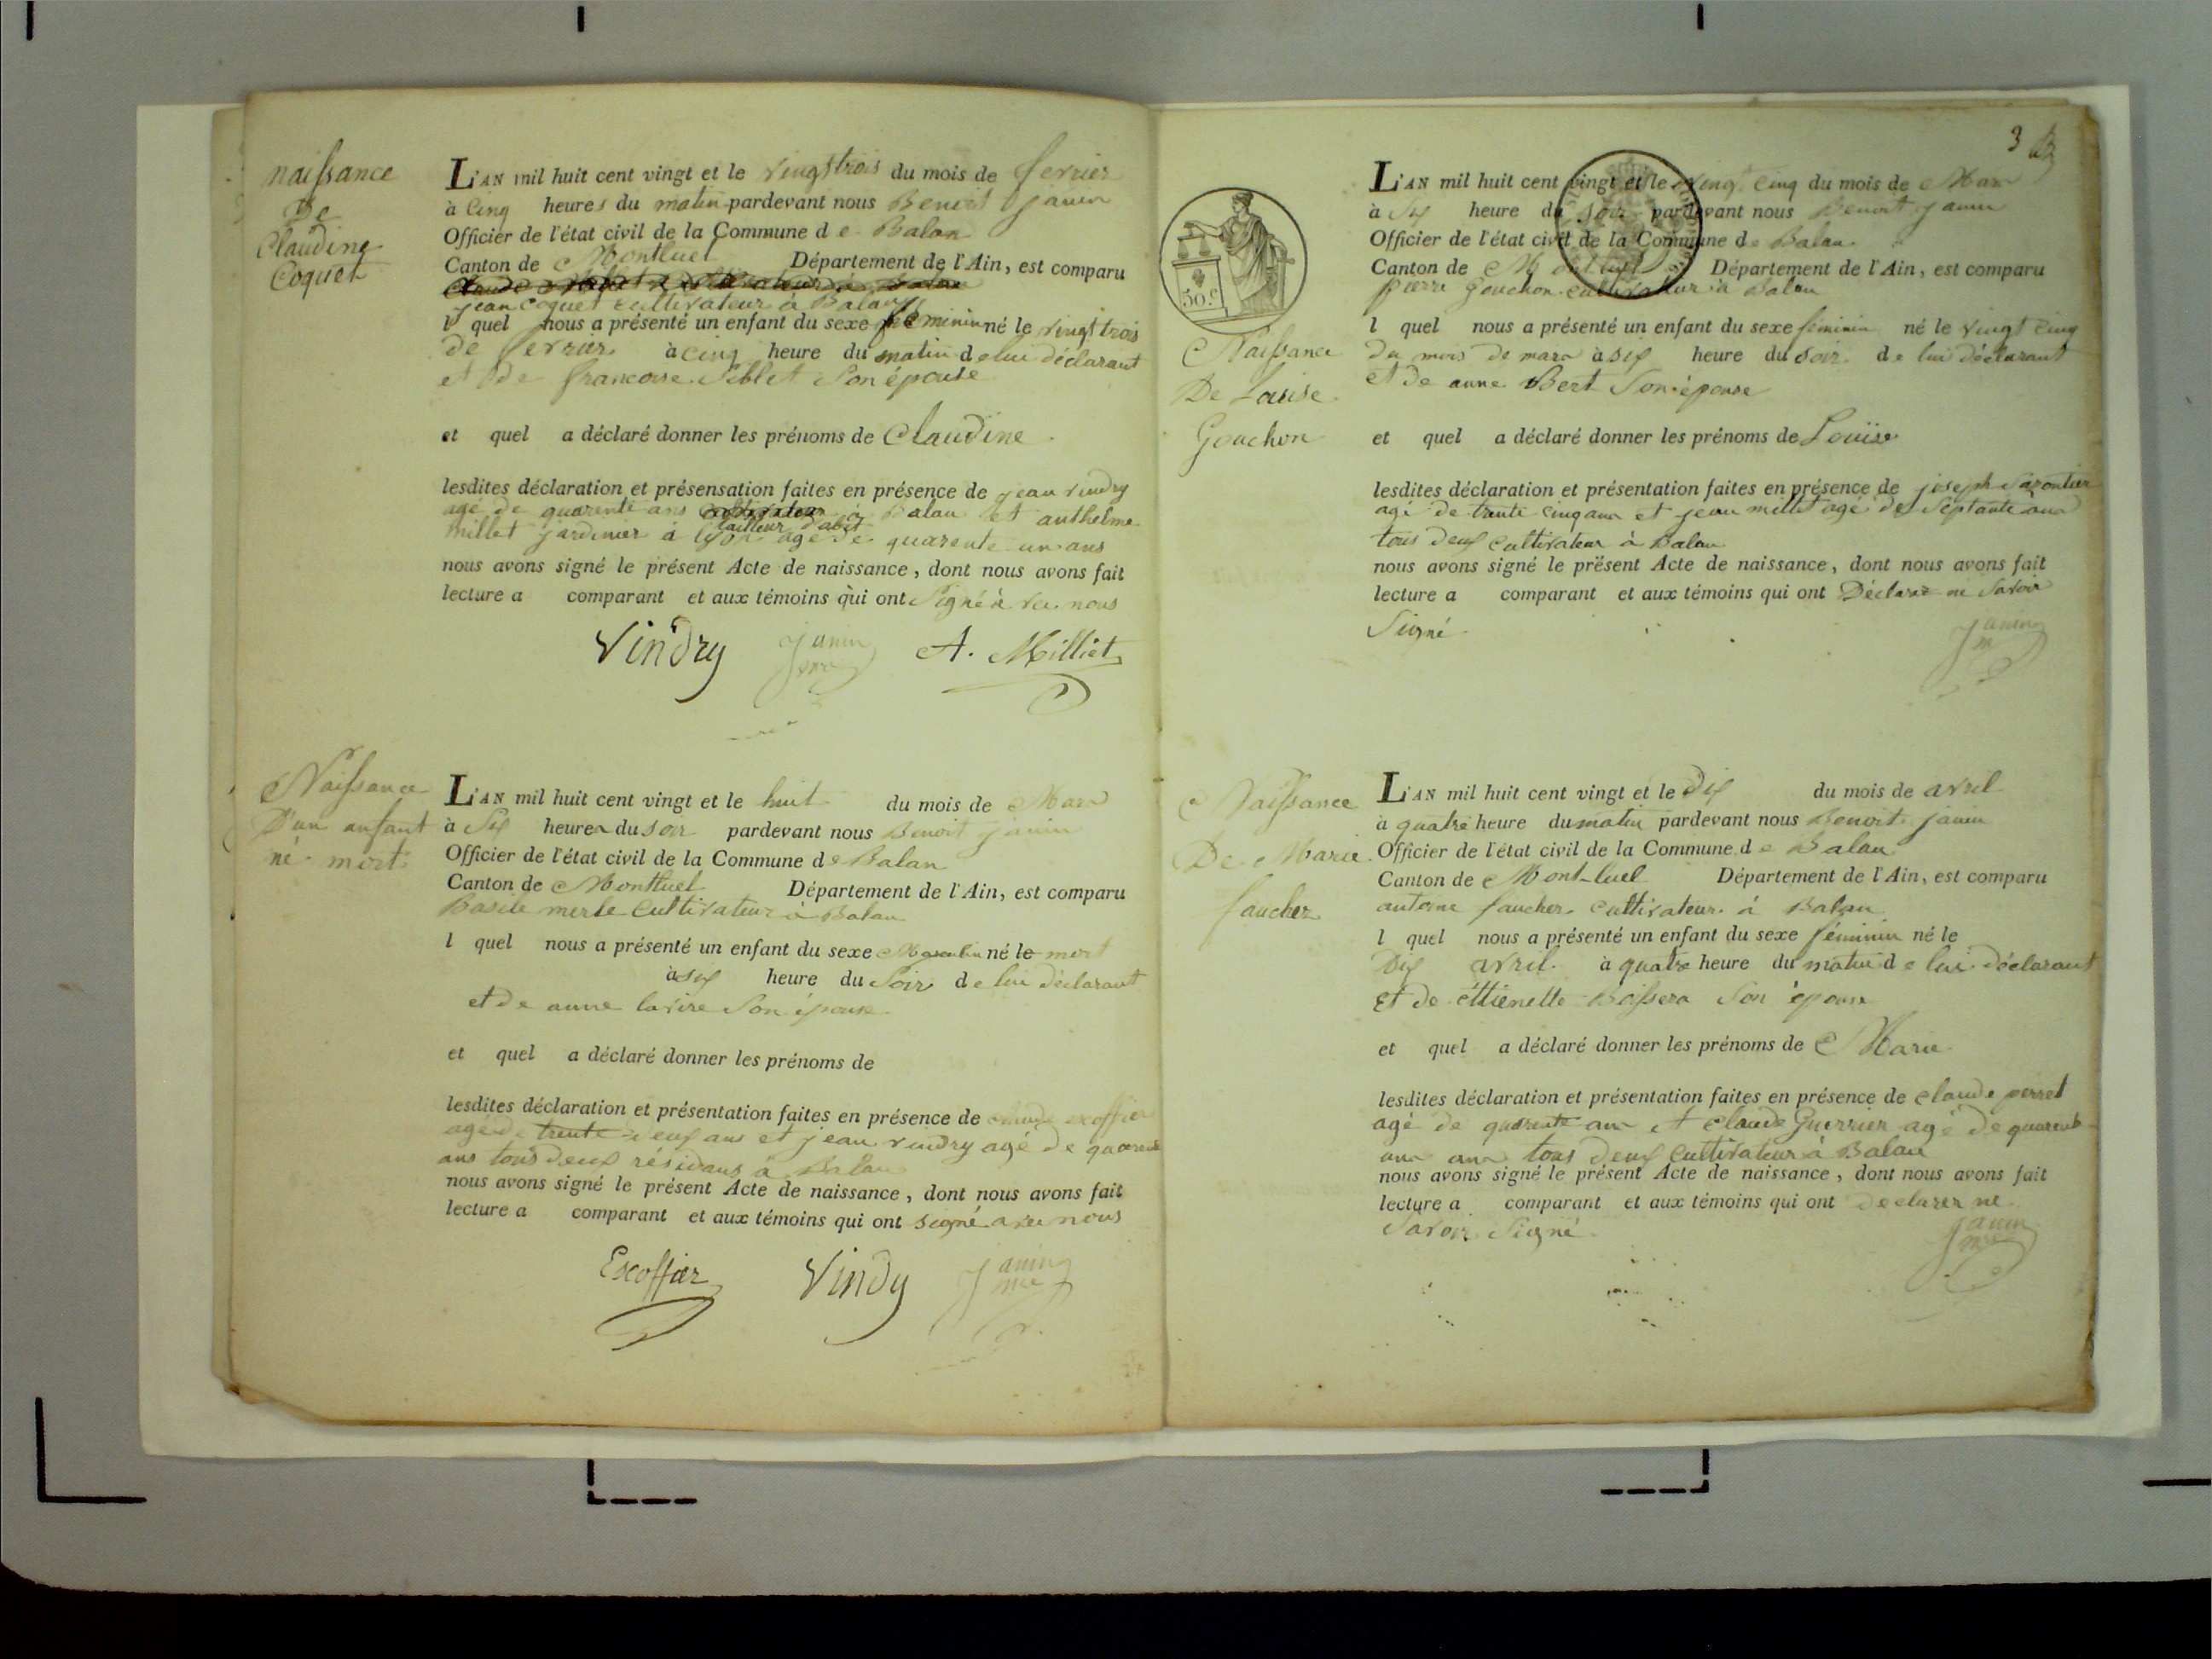 naissance
De
Claudine
Coquet
L'AN mil huit cent vingt et le vingt trois du mois de fevrier
à Cinq heures du matin pardevant nous Benoit janin
Officier de l'état civil de la Commune de Balan
Canton de Montluel Département de l'Ain, est comparu
jean Coquet cultivateur à Balan
l quel nous a présenté un enfant du sexe feminin né le vingt trois
de fevrier à cinq heure du matin de lui déclarant
et de francoise Siblet Son épouse
et quel a déclaré donner les prénoms de Claudine
lesdites déclaration et présensation faites en présence de jean vindry
agé de quarente ans cultivateur à Balan et anthelme
tailleur d'abit
millet jardinier à lyon agé de quarente un ans
nous avons signé le présent Acte de naissance, dont nous avons fait
lecture a comparant et aux témoins qui ont Signé à vec nous
Vindry janin A. Milliet
Naissance
D'un anfant
né mort
L'AN mil huit cent vingt et le huit du mois de Mars
à Six heures du soir pardevant nous Benoit janin
Officier de l'état civil de la Commune de Balan
Canton de Montluel Département de l'Ain, est comparu
Basile merle Cultivateur à Balan
l quel nous a présenté un enfant du sexe Masculin né le mort
à six heure du Soir de lui déclarant
et de anne lavire Son épouse
et quel a déclaré donner les prénoms de
lesdites déclaration et présentation faites en présence de claude excoffier
agé de trente neuf ans et jean vindry agé de quarente
ans tous deux résidans à Balan
nous avons signé le présent Acte de naissance, dont nous avons fait
lecture a comparant et aux témoins qui ont signé avec nous
Escoffier Vindy janin
3
50.c
Naissance
De Louise
Gouchon
L'AN mil huit cent vingt et le vingt Cinq du mois de Mars
à Six heure du Soir pardevant nous Benoit janin
Officier de l'état civil de la Commune de Balan
Canton de Montluel Département de l'Ain, est comparu
pierre Gouchon cultivateur à Balan
l quel nous a présenté un enfant du sexe feminin né le vingt Cinq
du mois de mars à six heure du soir de lui déclarant
et de anne Bert Son épouse
et quel a déclaré donner les prénoms de Louise
lesdites déclaration et présentation faites en présence de joseph Savontier
agé de trente cinq ans et jean millet agé de Séptante ans
tous deux Cultivateur à Balan
nous avons signé le présent Acte de naissance, dont nous avons fait
lecture a comparant et aux témoins qui ont Déclarer ne Savoir
Signé
janin
Naissance
De Marie
faucher
L'AN mil huit cent vingt et le Dix du mois de avril
à quatre heure du matin pardevant nous Benoit janin
Officier de l'état civil de la Commune de Balan
Canton de Mont-luel Département de l'Ain, est comparu
antoine faucher cultivateur à Balan
l quel nous a présenté un enfant du sexe féminin né le
Dix avril à quatre heure du matin de lui déclarant
Et de éttienette Boissera Son épouse
et quel a déclaré donner les prénoms de Marie
lesdites déclaration et présentation faites en présence de claude perret
agé de quarente ans et Claude Guerrier agé de quarente
un ans tous deux Cultivateur à Balan
nous avons signé le présent Acte de naissance, dont nous avons fait
lecture a comparant et aux témoins qui ont declarer ne
Savoir Signé
janin